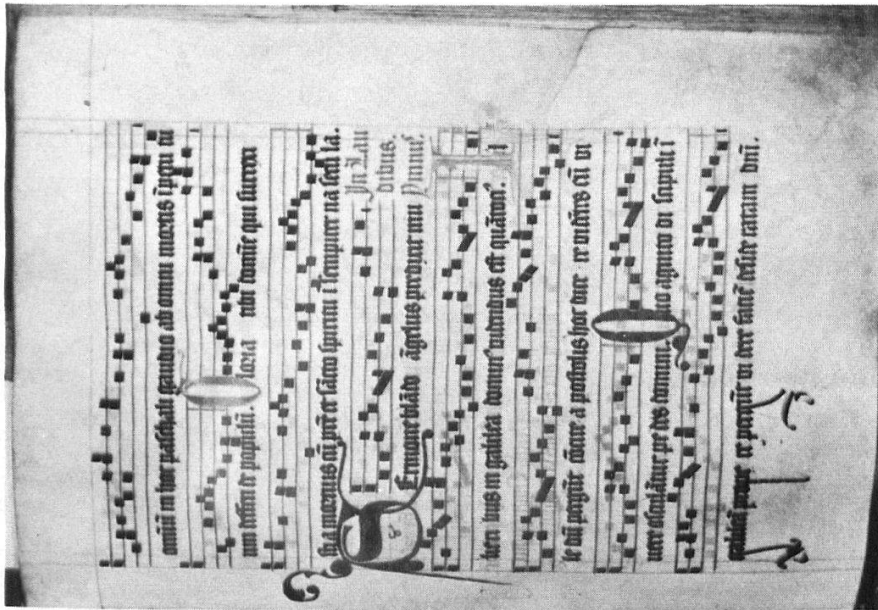 omniū in hoc paschali gaudio ab omni mortis īpetu tu
um defen de populū. tibi domīe qui surrexi
sti a mortuis cū pr̄e et sācto spiritu ī sempiter na secu la.
Yn Lau
dibus.
Ymnus.
Sermone blādo āgelus predixit mu
lieri bus in galilea domin⁹ videndus est quātoci⁹. I
le dū pergūt cōcite a postolis hoc dice re vidētes eū vi
uere osculātur pe des domini. Quo agnito di scipuli ī
galileā prope re pergūt vi dere faciē deside ratam dn̄i.